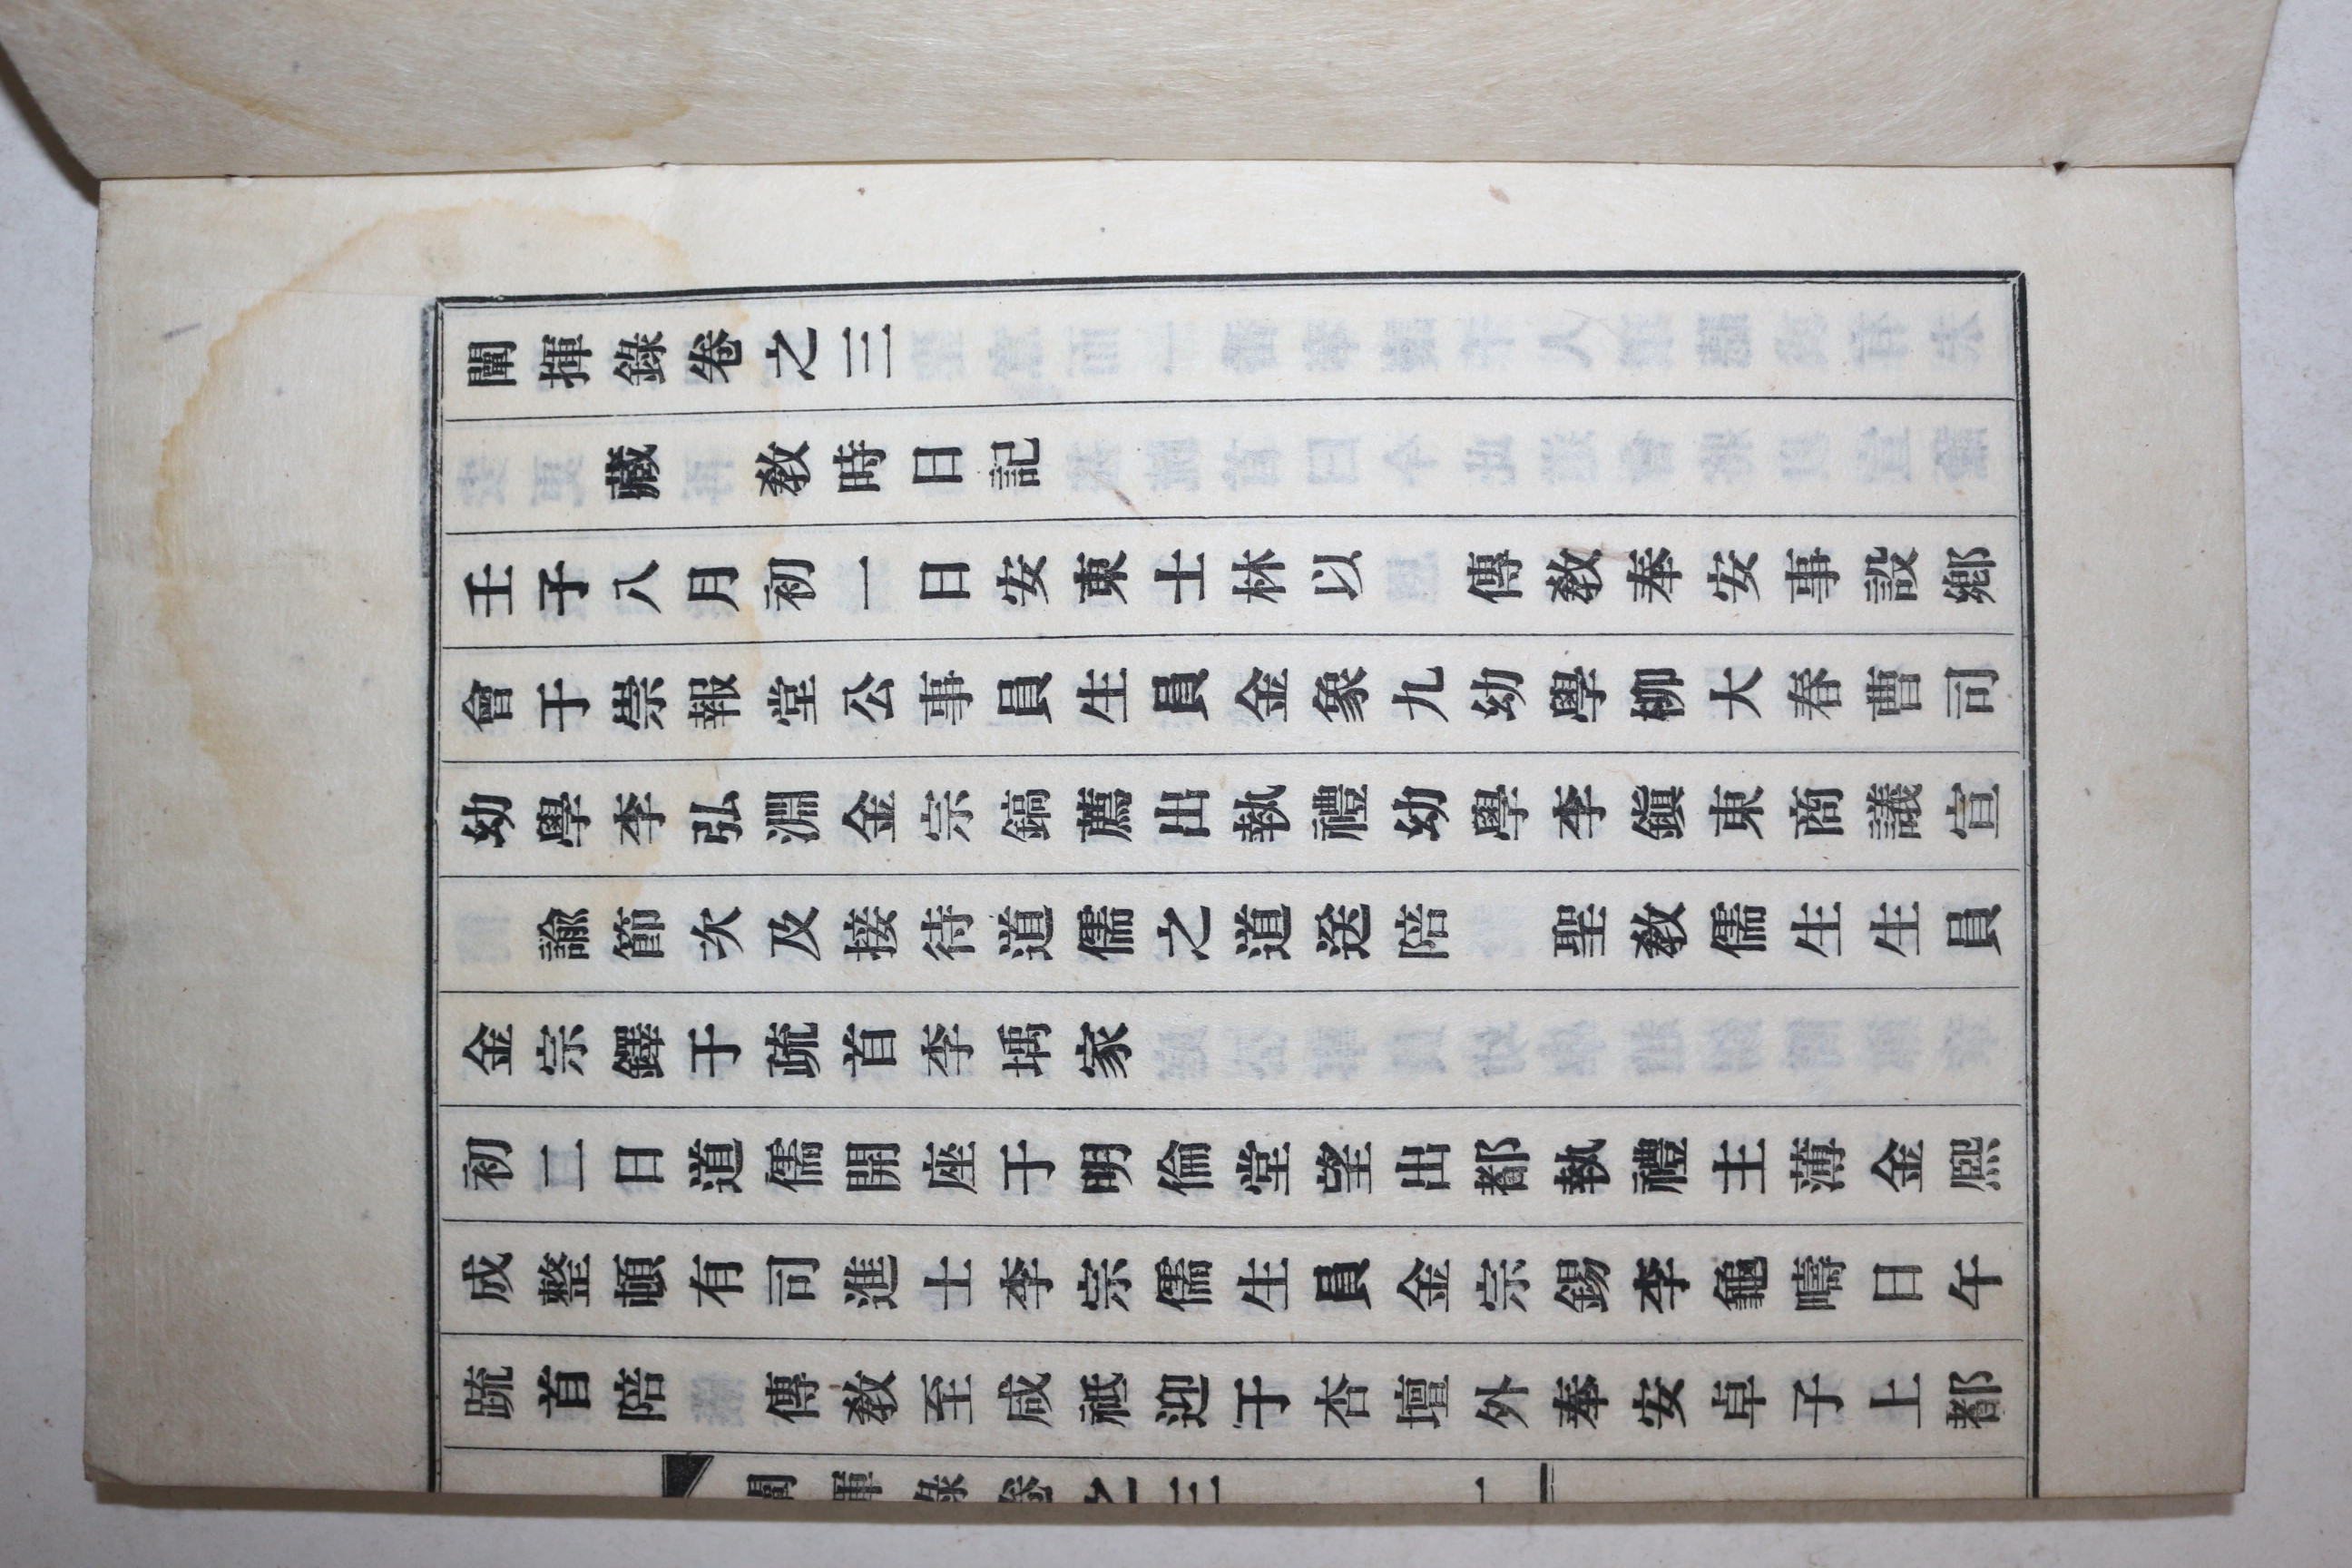 闡揮錄卷之三
藏　教時日記
壬子八月初一日安東士林以　傳教奉安事設鄉
會于崇報堂公事員生員金象九幼學柳大春曹司
幼學李弘淵金宗鎬薦出執禮幼學李鎭東商議宣
諭節次及接待道儒之道送陪　聖教儒生生員
金宗鐸于疏首李㙖家
初二日道儒開座于明倫堂望出都執禮主薄金熙
成整頓有司進士李宗儒生員金宗錫李龜疇日午
疏首陪　傳教至咸祗迎于杏壇外奉安卓子上都
闡揮錄卷之三　一